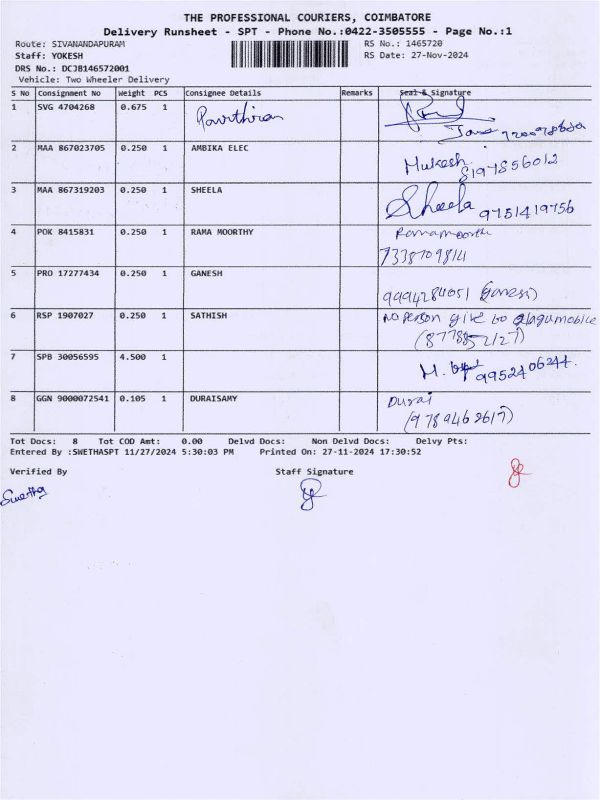 THE PROFESSIONAL COURIERS, COIMBATORE
Delivery Runsheet - SPT - Phone No.:0422-3505555 - Page No.:1
Route: SIVANANDAPURAM RS No.: 1465720
Staff: YOKESH RS Date: 27-Nov-2024
DRS No.: DCJB146572001
Vehicle: Two Wheeler Delivery
S No Consignment No Weight PCS Consignee Details Remarks Seal & Signature
1 SVG 4704268 0.675 1 Pavithiran
2 MAA 867023705 0.250 1 AMBIKA ELEC Mukesh
8197856012
3 MAA 867319203 0.250 1 SHEELA Sheela 9751419756
4 POK 8415831 0.250 1 RAMA MOORTHY Ramamoorthi
7338709814
5 PRO 17277434 0.250 1 GANESH
9994284051 (Ganesi)
6 RSP 1907027 0.250 1 SATHISH No person give to mobile
7 SPB 30056595 4.500 1 M. 9952406244.
8 GGN 9000072541 0.105 1 DURAISAMY Durai
(9789462617)
Tot Docs: 8 Tot COD Amt: 0.00 Delvd Docs: Non Delvd Docs: Delvy Pts:
Entered By :SWETHASPT 11/27/2024 5:30:03 PM Printed On: 27-11-2024 17:30:52
Verified By Staff Signature
Swetha